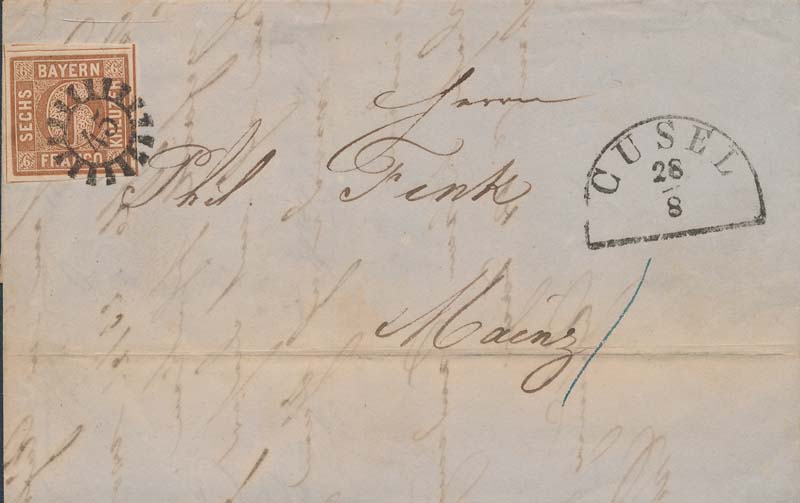 BAYERN
SECHS
KREUZER
FRANCO
6
75
Herrn
Phil. Fink
Mainz
CUSEL
28
8